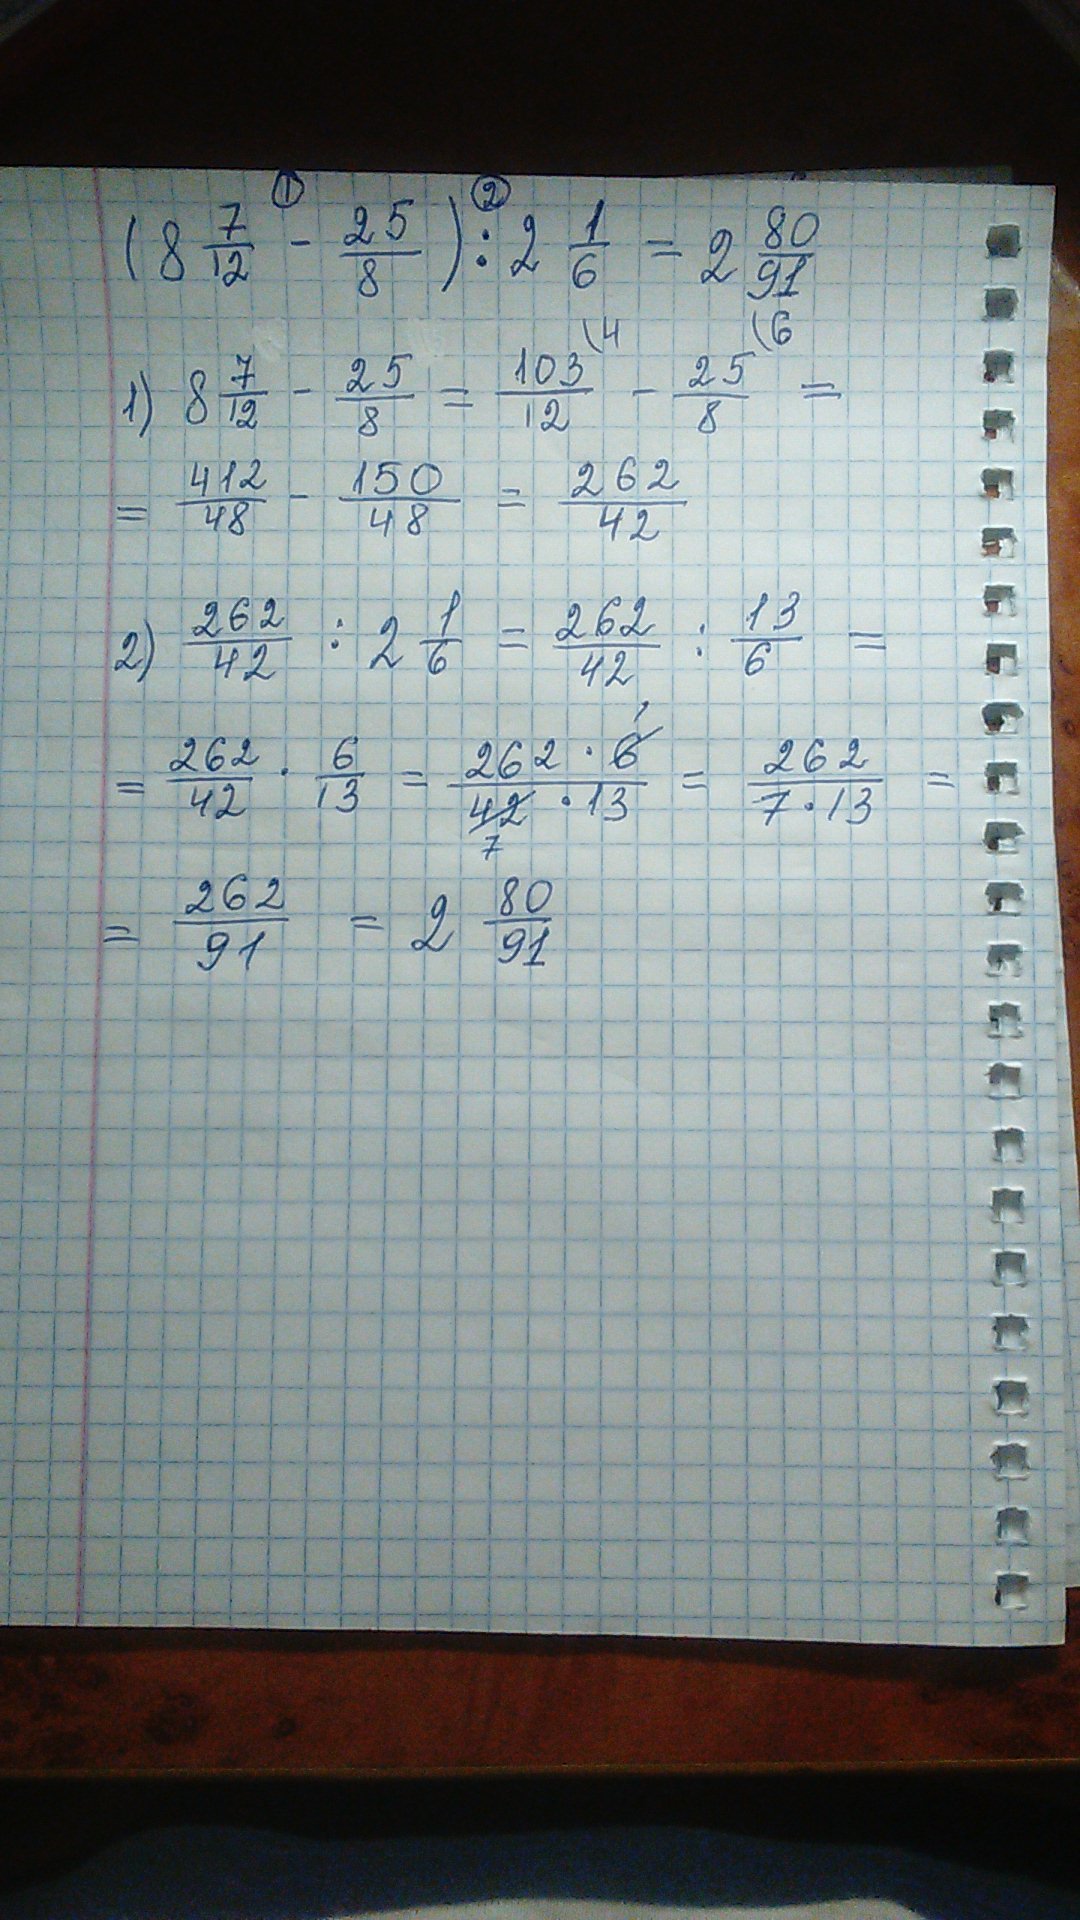 ① ②
(8 7/12 - 25/8) : 2 1/6 = 2 80/91
1) 8 7/12 - 25/8 = 103/12 (4 - 25/8 (6 =
= 412/48 - 150/48 = 262/42
2) 262/42 : 2 1/6 = 262/42 : 13/6 =
= 262/42 · 6/13 = 262 · 6 1/42 7 · 13 = 262/7 · 13 =
= 262/91 = 2 80/91